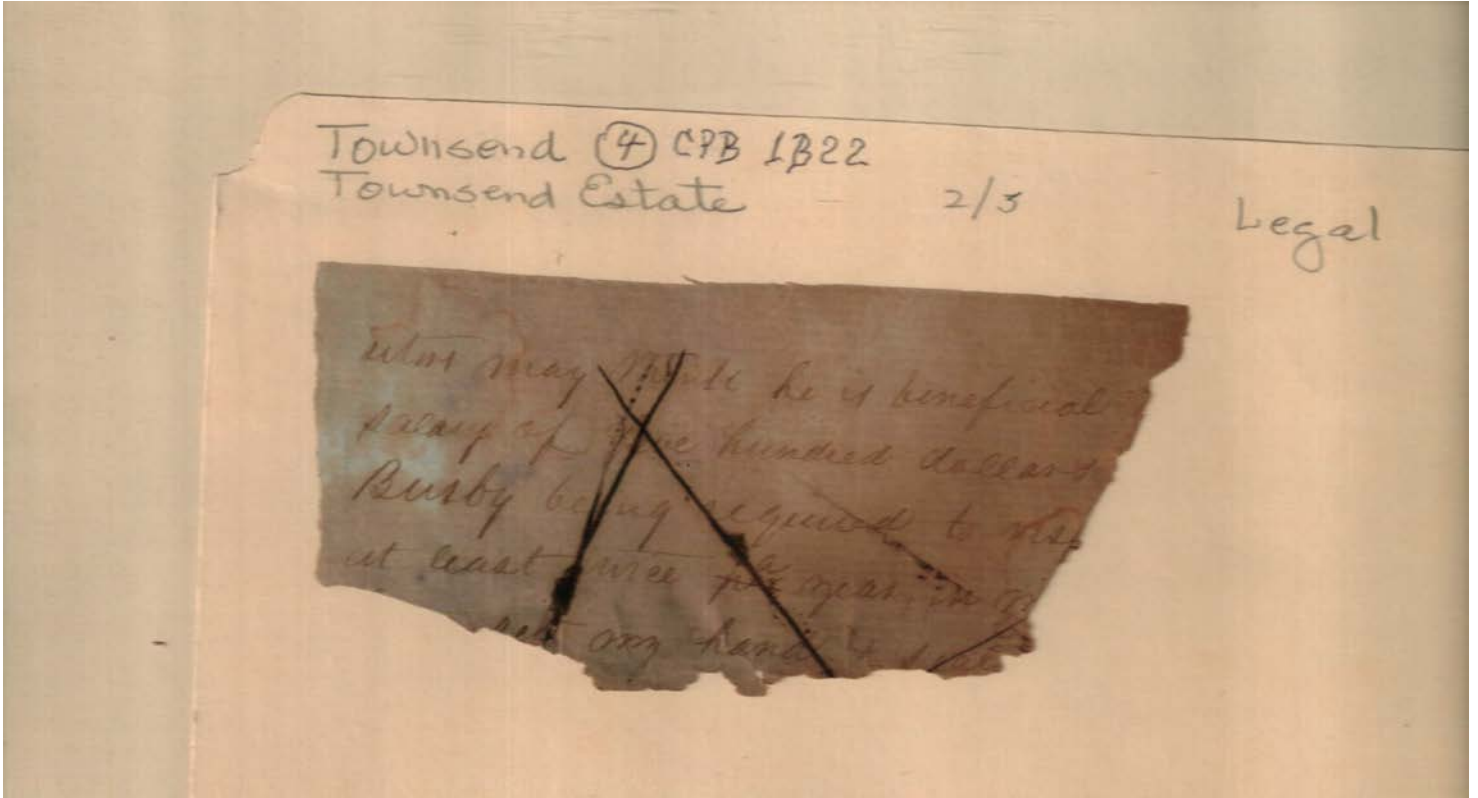 Townsend ④ CPB 1B22
Townsend Estate 2/3 Legal
may think he is beneficial
salary of hundred dollars
Busby being required to
at least twice a year, in
my hand &